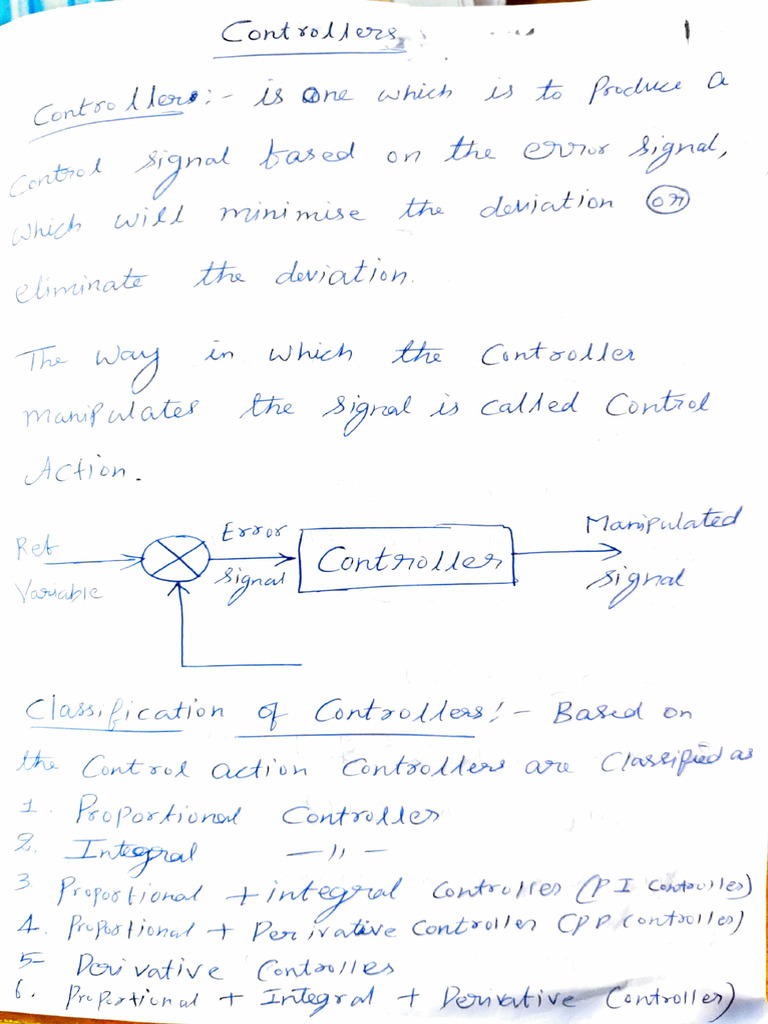 Controllers
1
Controllers:- is one which is to Produce a
Control signal based on the error signal,
which will minimise the deviation or
eliminate the deviation.
The way in which the Controller
manipulates the signal is called Control
Action.
Ref
Variable
Error
signal
Controller
Manipulated
signal
Classification of Controllers:- Based on
the Control action Controllers are Classified as
1. Proportional Controller
2. Integral —〃—
3. Proportional + integral Controller (PI Controller)
4. Proportional + Derivative Controller (PD Controller)
5- Derivative Controller
6. Proportional + Integral + Derivative Controller)